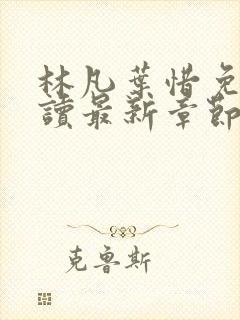 林凡葉惜免
讀最新章節
克魯斯